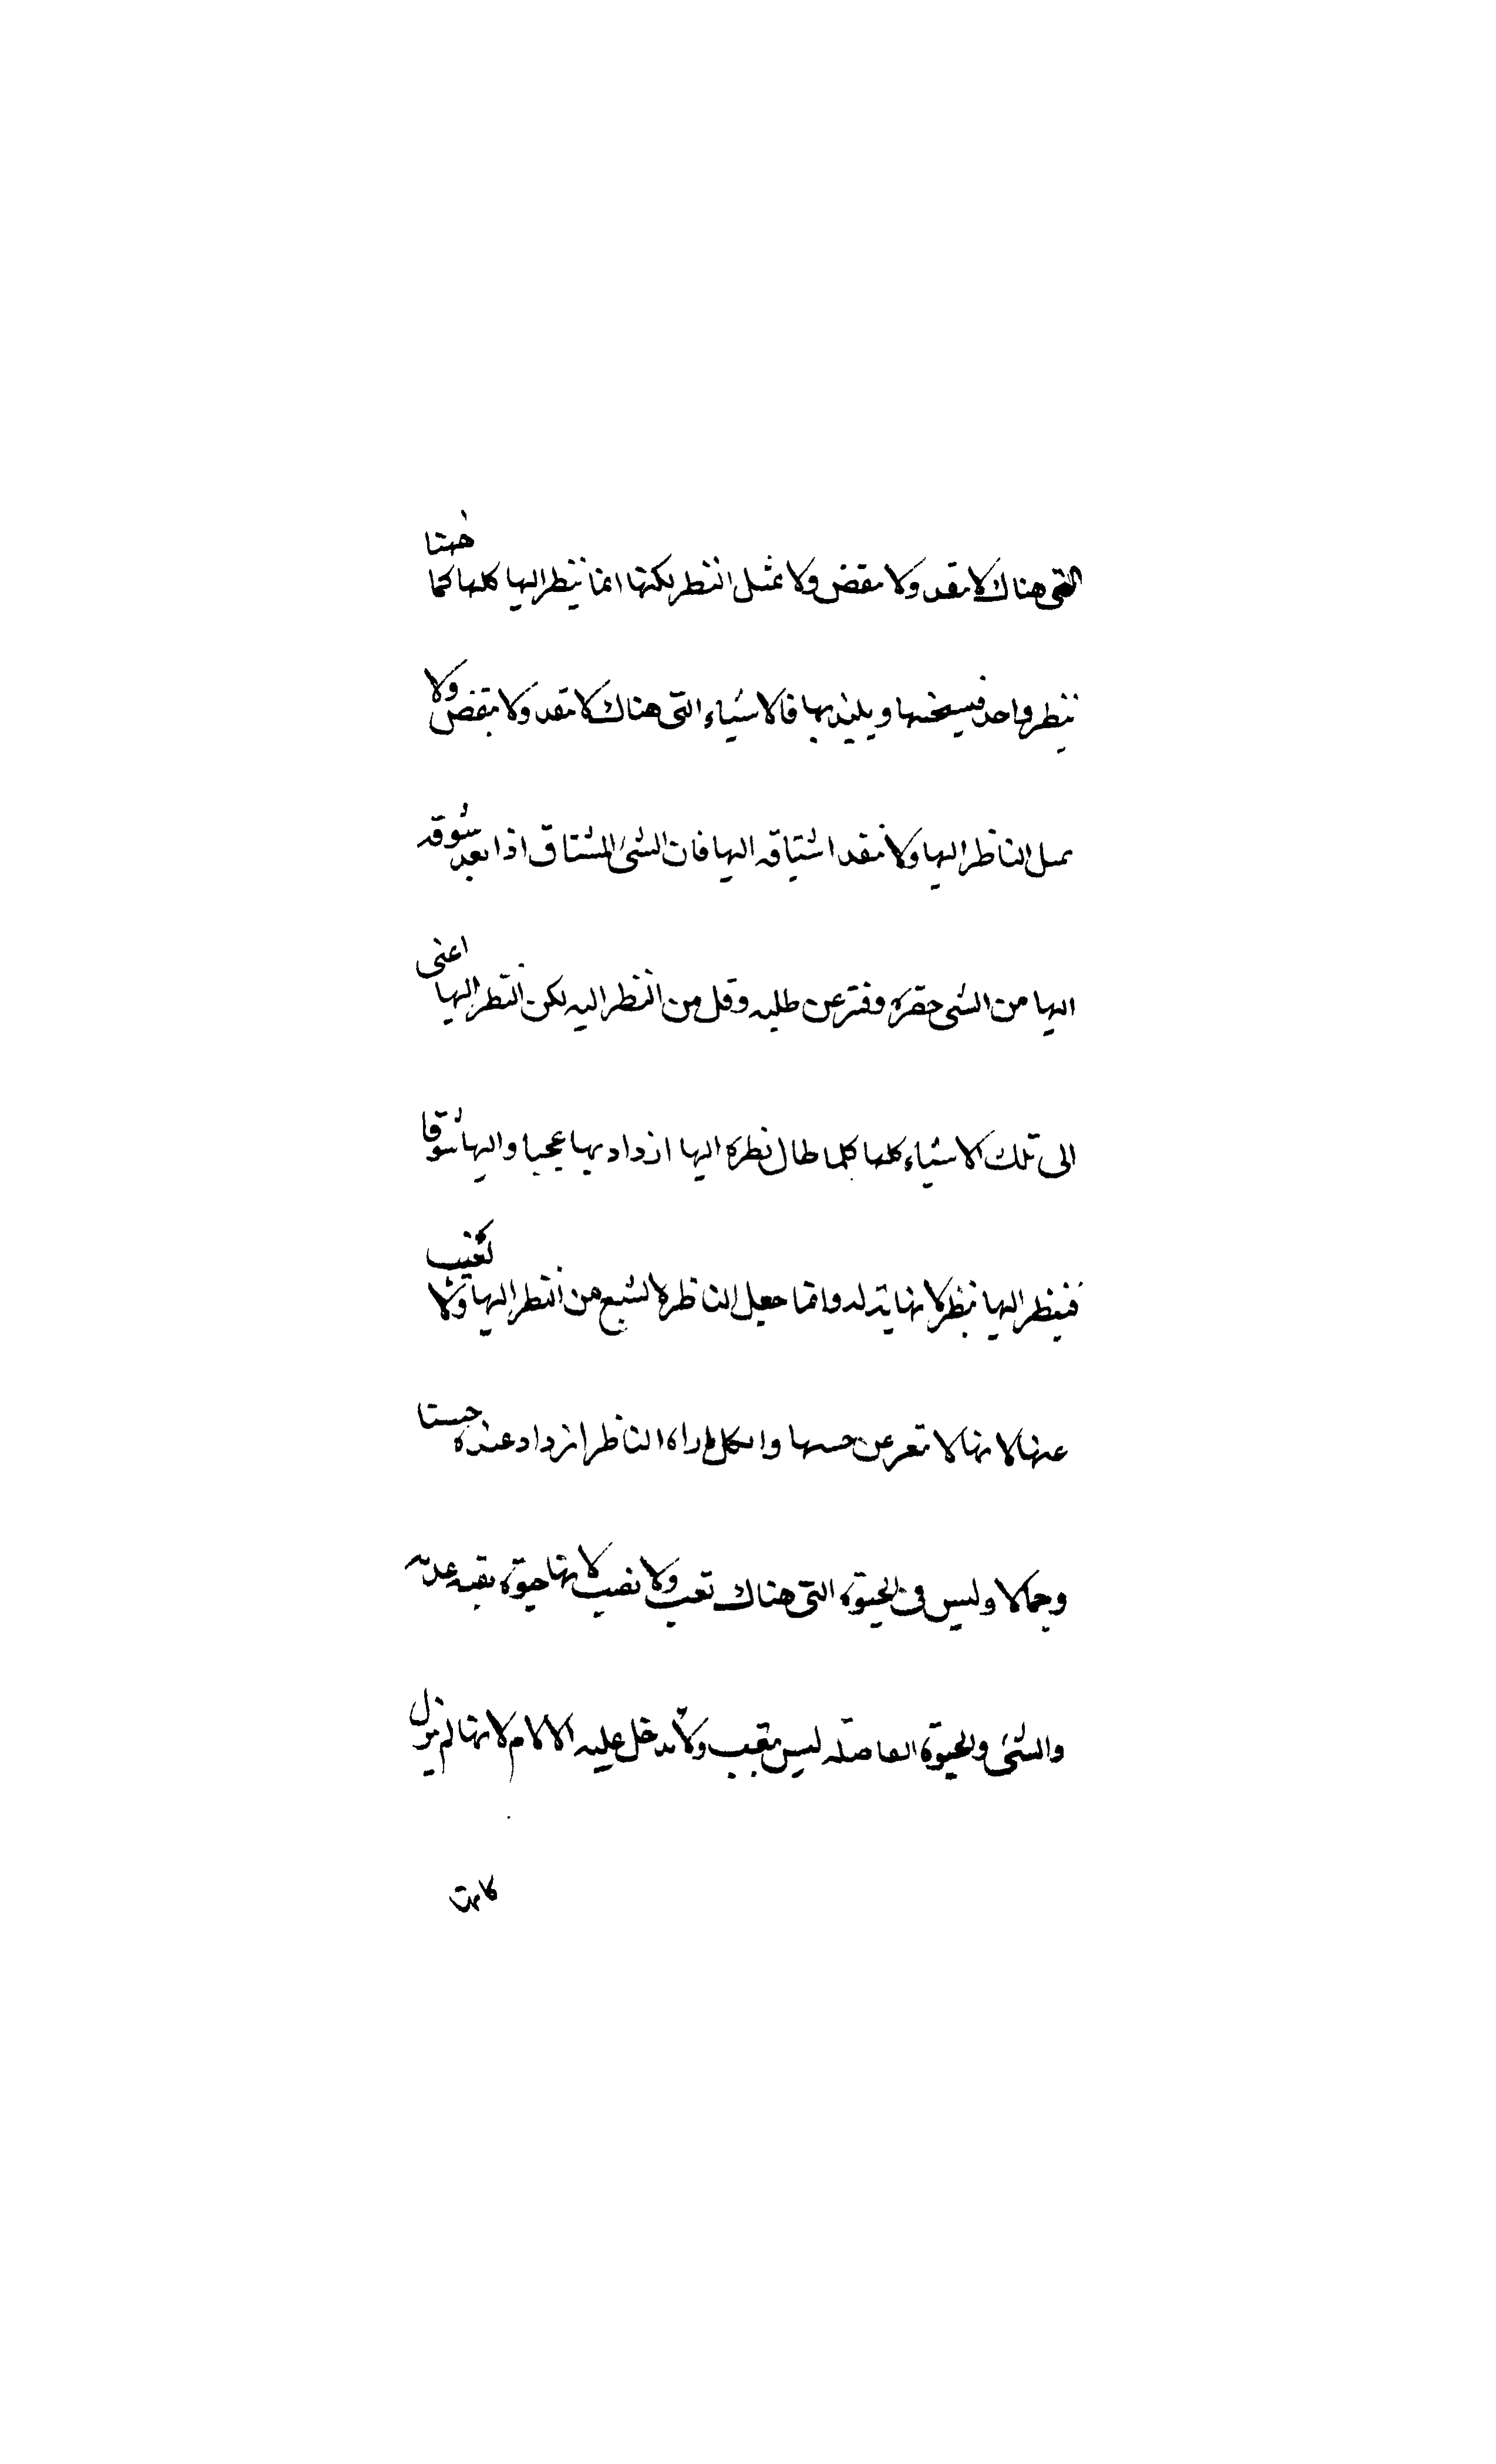 التى هناك لا تنفد ولا تنقض ولا تمثل النظر لكنها انما ينظر اليها كلها كما ههنا
ينظر واحد فيستحسنها ويلتذ بها فالاشياء التى هناك لا تنفد ولا تنقض ولا
يمل الناظر اليها ولا ينفد اشتياقه اليها فان الشئ المشتاق اذا بعد شوقه
اليها من الشى حقره وفتر عن طلبه وقل من النظر اليه لكن النظر اليها اعنى
الى تلك الاشياء كلها كلما طال نظره اليها ازداد بها عجبا واليها شوقا
فينظر اليها بنظر لا نهاية له وانما جعل الناظر لا يشبع من النظر اليها ولا
عنها لانها لا تعر عن حسنها والكل راه الناظر ازداد عنده حسنا
وجمالا وليس فى الحيوة التى هناك تعب ولا نصب لانها حيوة نقيه عذبه
والشئ والحيوة الفاضله ليس بتعب ولا يدخل عليه الالام لانها لم يزل
كانت